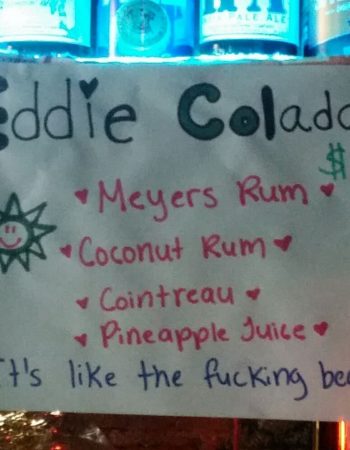 PALE ALE
Eddie Colada
$
Meyers Rum
Coconut Rum
Cointreau
Pineapple Juice
It's like the fucking